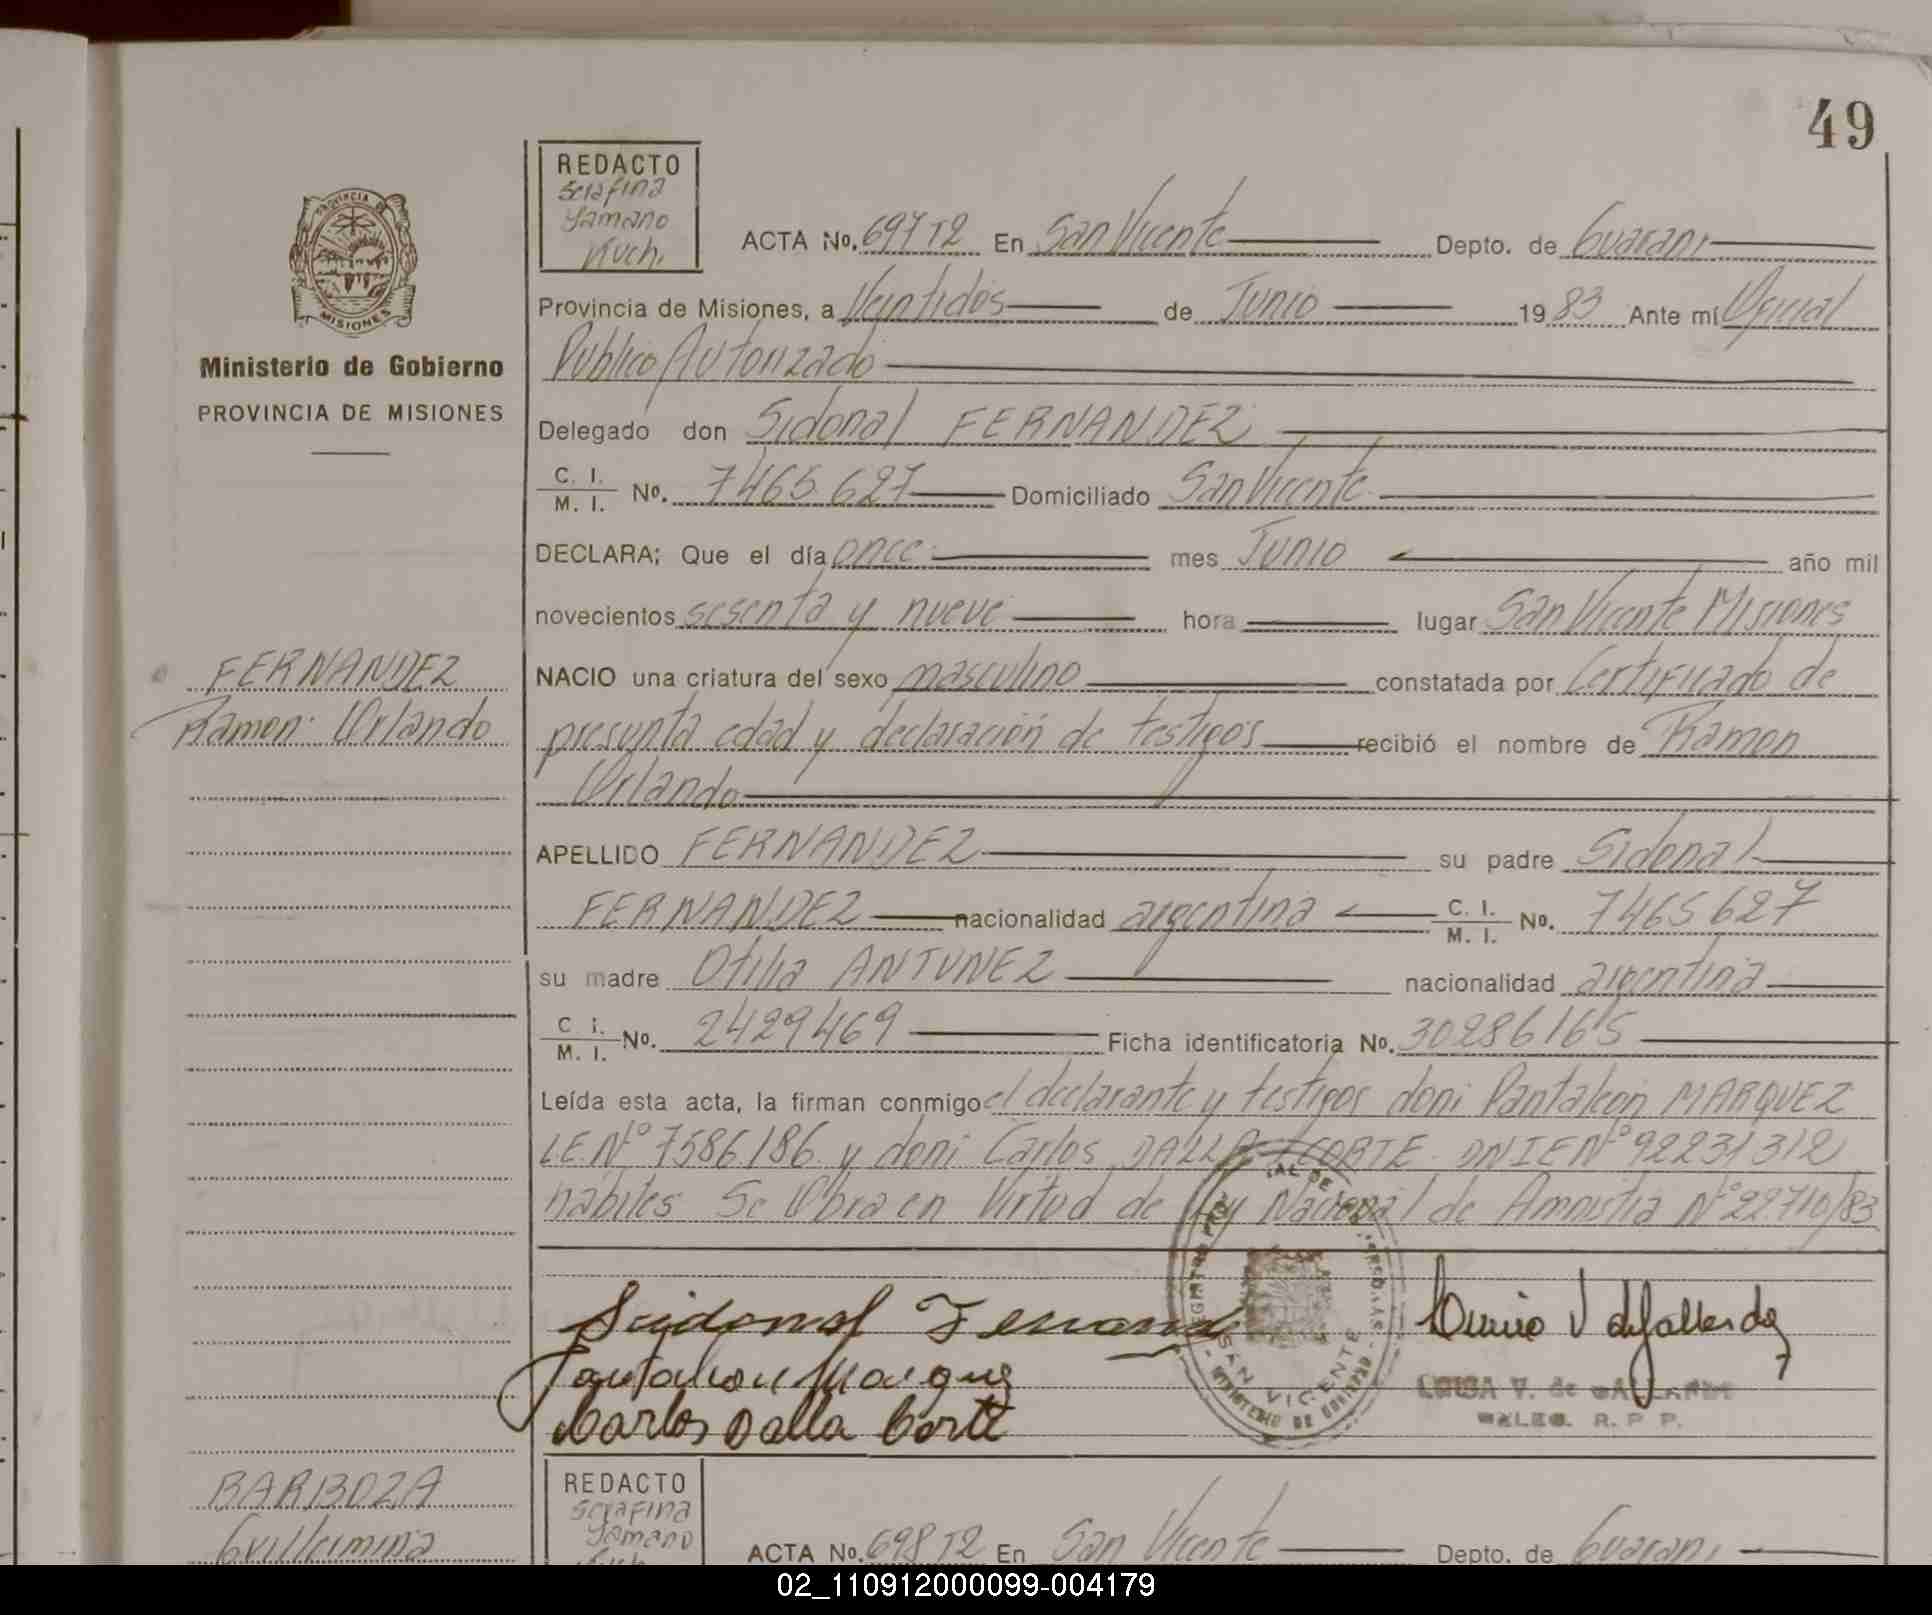 49
REDACTO
Serafina
Yamano
Kuch.
PROVINCIA DE
MISIONES
Ministerio de Gobierno
PROVINCIA DE MISIONES
ACTA No. 697 T2 En San Vicente Depto. de Guarani
Provincia de Misiones, a Veintidós de Junio 1983 Ante mí Oficial
Publico Autorizado
Delegado don Sidonal FERNANDEZ
C. I. / M. I. No. 7465.627 Domiciliado San Vicente
DECLARA; Que el día once mes Junio año mil
novecientos sesenta y nueve hora lugar San Vicente Misiones
FERNANDEZ
Ramon Orlando
NACIO una criatura del sexo masculino constatada por Certificado de
presunta edad y declaración de testigos recibió el nombre de Ramon
Orlando
APELLIDO FERNANDEZ su padre Sidonal
FERNANDEZ nacionalidad argentina C. I. / M. I. No. 7465627
su madre Otilia ANTUNEZ nacionalidad argentina
C. I. / M. I. No. 2429469 Ficha identificatoria No. 30286165
Leída esta acta, la firman conmigo el declarante y testigos don: Pantaleón MARQUEZ
LE.Nº 7586.186 y don: Carlos DALLA CORTE. DNIE Nº 92231312
hábiles Se Obra en Virtud de Ley Nacional de Amnistia Nº 22710/83
Sidonal Fernand
Pantaleon Marquez
Carlos Dalla Corte
SAN VICENTE
MINISTERIO DE GOBIERNO
LUISA V. de GALLARDO
R. P. P.
BARBOZA
Guillermina
REDACTO
Serafina
Yamano
Kuch
ACTA No. 698 T2 En San Vicente Depto. de Guarani
02_110912000099-004179